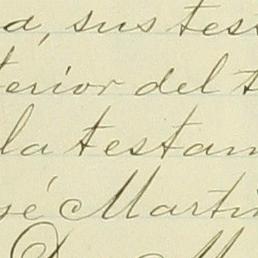 a, sus tes
terior del t
la testam
sé Martin
D. M